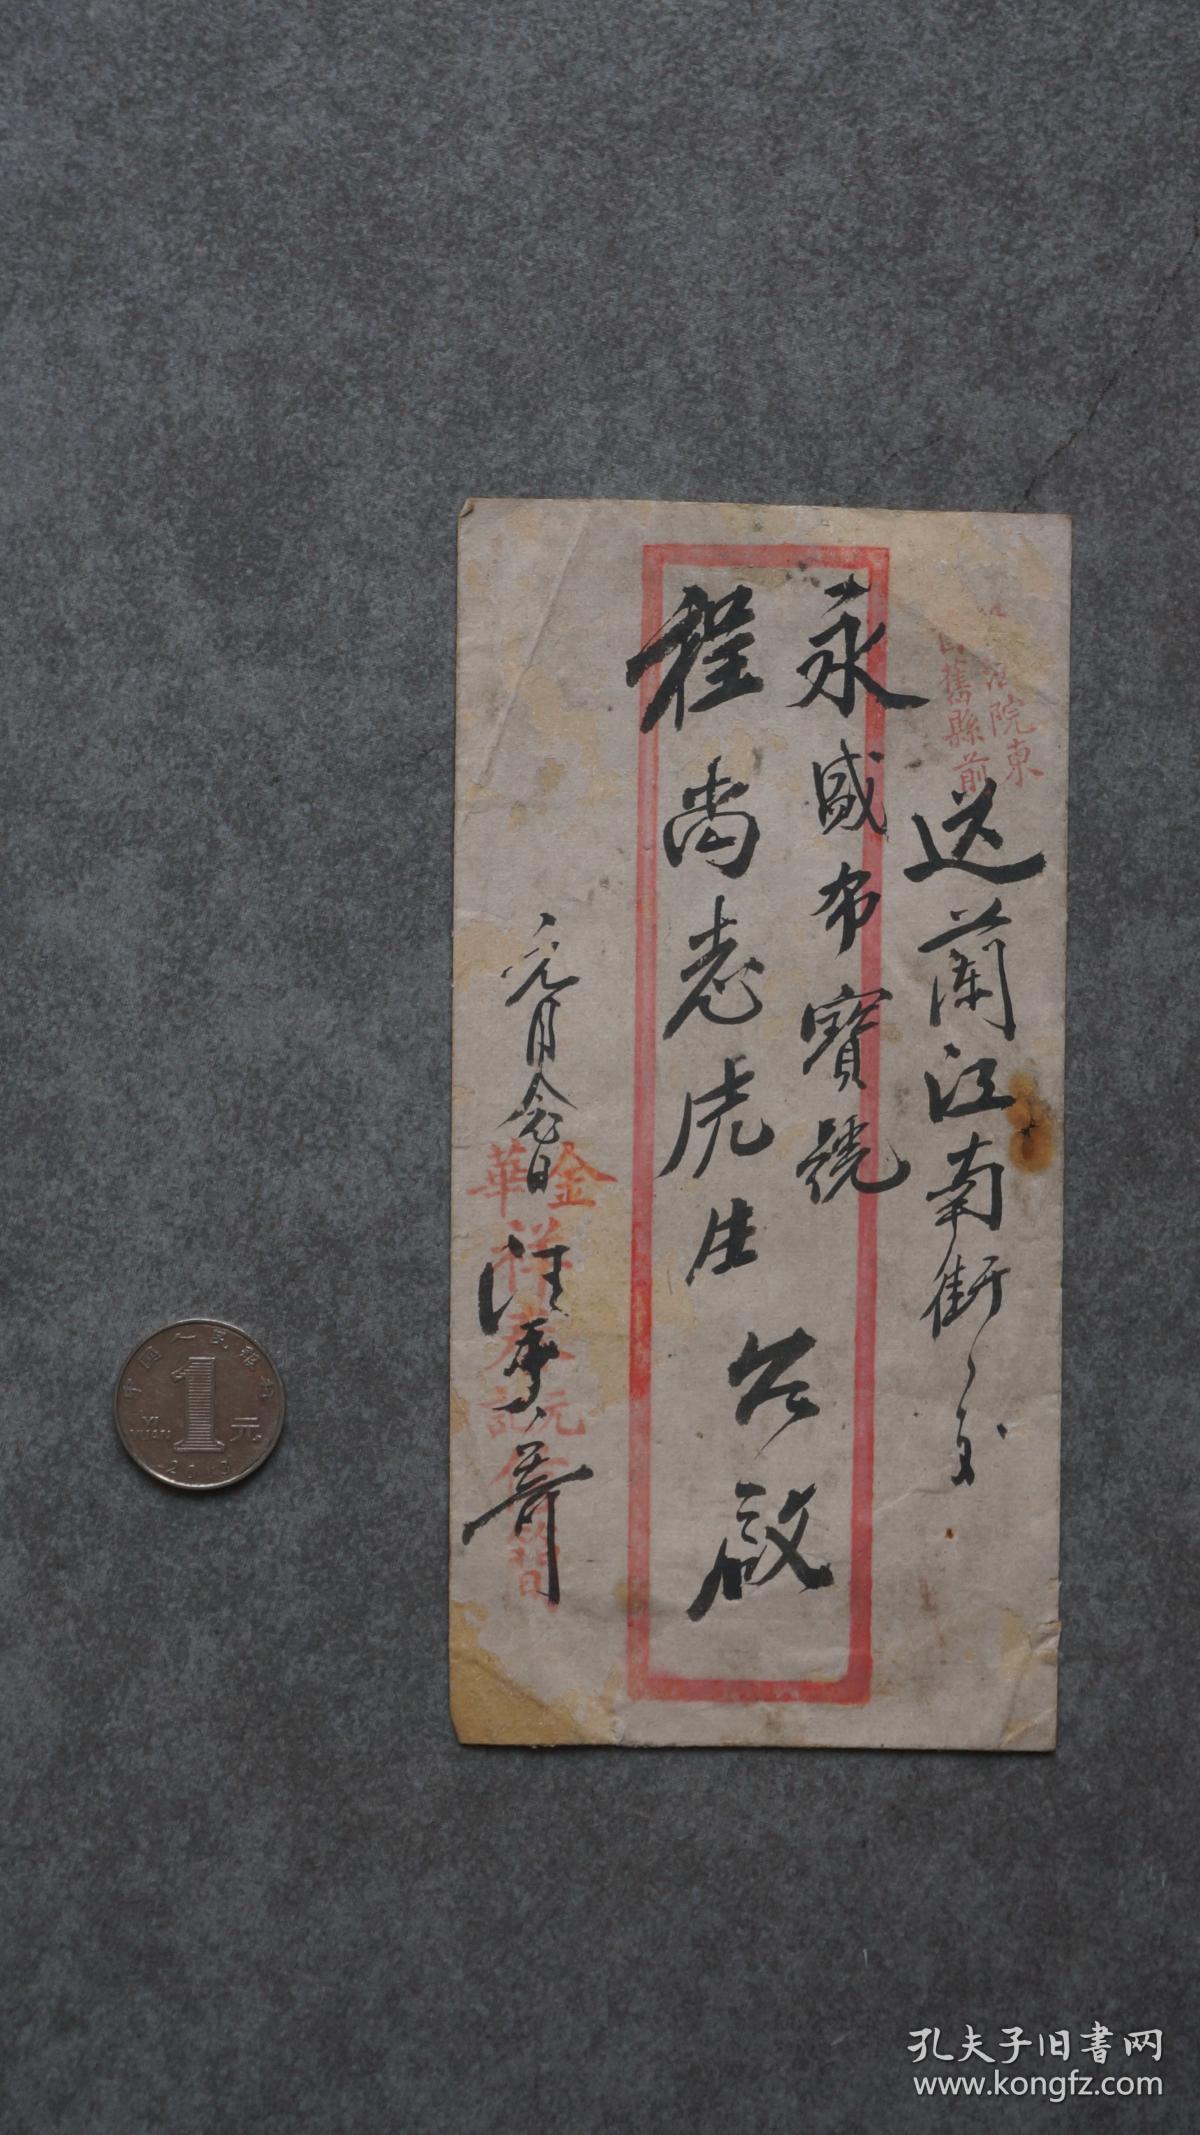 院東
舊縣前
送蘭江南街
永盛布寶號
程尚志虎生台啟
元月念日汪季寄
金華
祥泰
元記
中国人民银行
1元
YI YUAN
孔夫子旧书网
www.kongfz.com